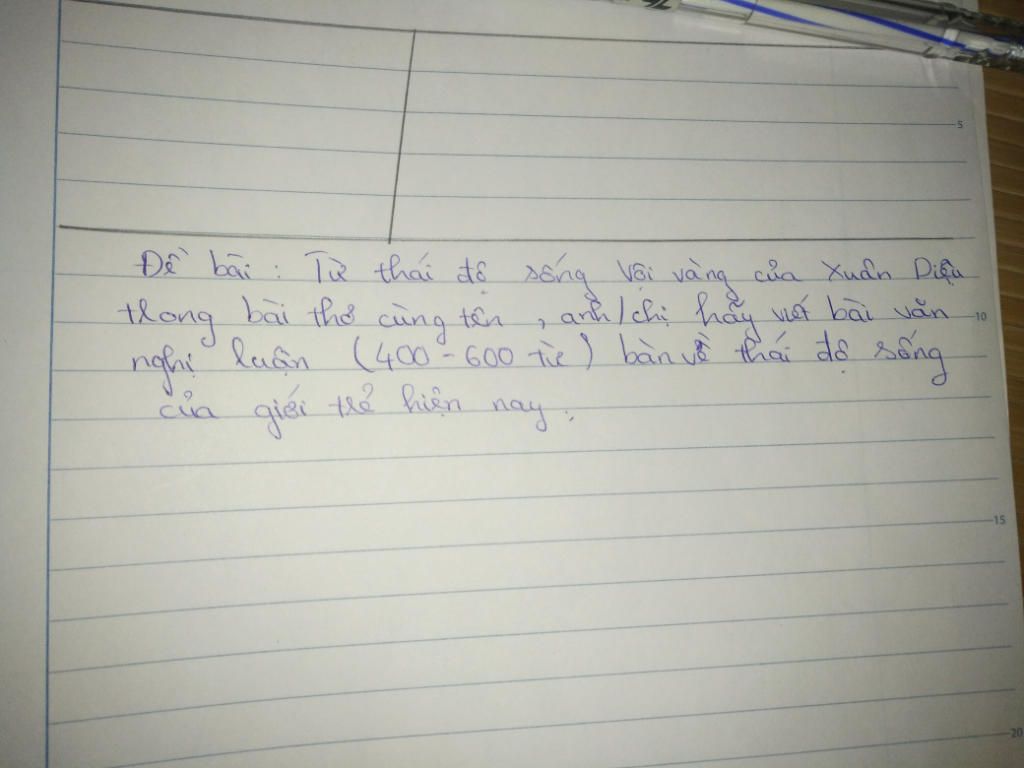 5
Đề bài : Từ thái độ sống vội vàng của Xuân Diệu
trong bài thơ cùng tên , anh/chị hãy viết bài văn
10
nghị luận (400-600 từ) bàn về thái độ sống
của giới trẻ hiện nay.
15
20